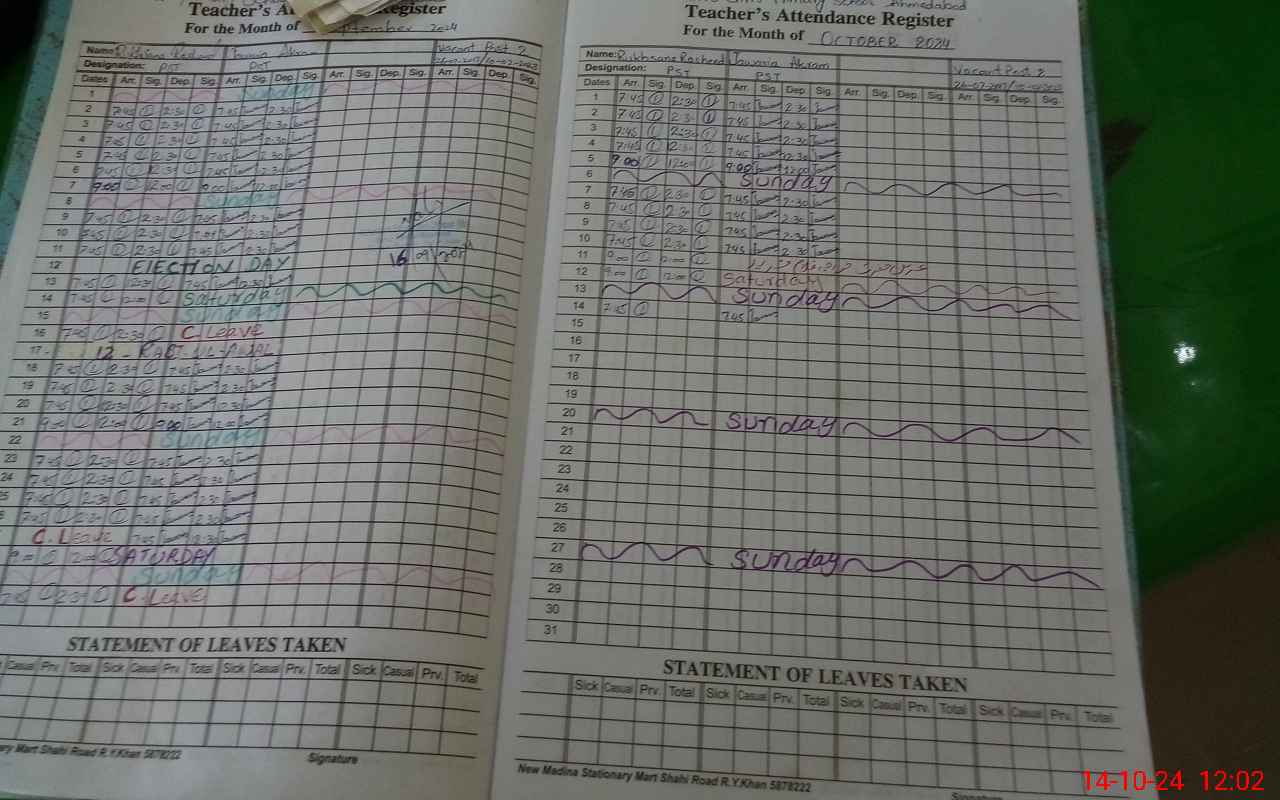 Teacher's Attendance Register
For the Month of September 2024
Name: Designation: PST PST
Vacant Post 2
Dates Arr. Sig. Dep. Sig. Arr. Sig. Dep. Sig. Arr. Sig. Dep. Sig. Arr. Sig. Dep. Sig.
1 Sunday
2 7:45 2:30 7:45 2:30
3 7:45 2:30 7:45 2:30
4 7:45 2:30 7:45 2:30
5 7:45 2:30 7:45 2:30
6 7:45 12:30 7:45 12:30
7 9:00 12:00 9:00 12:00
8 Sunday
9 7:45 2:30 7:45 2:30
10 7:45 2:30 7:45 2:30
11 7:45 2:30 7:45 2:30
12 ElECTION DAY
13 7:45 12:30 7:45 12:30
14 7:45 12:00 Saturday
15 Sunday
16 7:45 2:30 C. Leave
16 09
17 12 - RABI-UL-AWAL
18 7:45 2:30 7:45 2:30
19 7:45 2:30 7:45 2:30
20 7:45 12:30 7:45 12:30
21 9:00 12:00 9:00 12:00
22 Sunday
23 7:45 2:30 7:45 2:30
24 7:45 2:30 7:45 2:30
25 7:45 2:30 7:45 2:30
7:45 2:30 7:45 2:30
C. Leave 7:45 2:30
9:00 12:00 SATURDAY
Sunday
7:45 2:30 C. Leave
STATEMENT OF LEAVES TAKEN
Casual Prv. Total Sick Casual Prv. Total Sick Casual Prv. Total Sick Casual Prv. Total
Mart Shahi Road R.Y.Khan 5878222
Signature
Primary School Ahmedabad
Teacher's Attendance Register
For the Month of OCTOBER 2024
Name: Rukhsana Rasheed Jawasia Akram
Designation: PST PST Vacant Post 2
Dates Arr. Sig. Dep. Sig. Arr. Sig. Dep. Sig. Arr. Sig. Dep. Sig. Arr. Sig. Dep. Sig.
1 7:45 2:30 7:45 2:30
2 7:45 2:30 7:45 2:30
3 7:45 2:30 7:45 2:30
4 7:45 12:30 7:45 12:30
5 9:00 12:00 9:00 12:00
6 Sunday
7 7:45 2:30 7:45 2:30
8 7:45 2:30 7:45 2:30
9 7:45 2:30 7:45 2:30
10 7:45 2:30 7:45 2:30
11 9:00 12:00
12 9:00 12:00 Saturday
13 Sunday
14 7:45 7:45
15
16
17
18
19
20 Sunday
21
22
23
24
25
26
27 Sunday
28
29
30
31
STATEMENT OF LEAVES TAKEN
Sick Casual Prv. Total Sick Casual Prv. Total Sick Casual Prv. Total Sick Casual Prv. Total
New Madina Stationary Mart Shahi Road R.Y.Khan 5878222
Signature
14-10-24 12:02